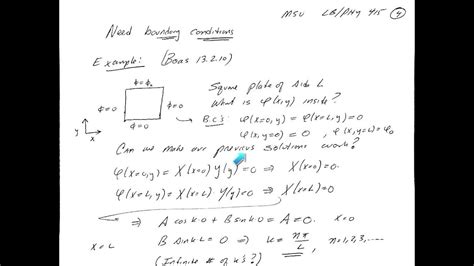 MSU LB/PHY 415 (4)
Need boundary conditions
Example: (Boas 13.2.10)
φ=φ₀
φ=0
φ=0
φ=0
y
x
Square plate of side L
What is φ(x,y) inside?
B.C's: φ(x=0,y) = φ(x=L,y)=0
φ(x,y=0) = 0, φ(x,y=L)=φ₀
Can we make our previous solutions work?
φ(x=0,y) = X(x=0) Y(y)=0 ⇒ X(x=0)=0
φ(x=L,y) = X(x=L) Y(y)=0 ⇒ X(x=L)=0
⇒ A cosk0 + B sink0 = A = 0. x=0
x=L B sinkL = 0 ⇒ k = nπ/L, n=1,2,3,....
(Infinite # of k's?)